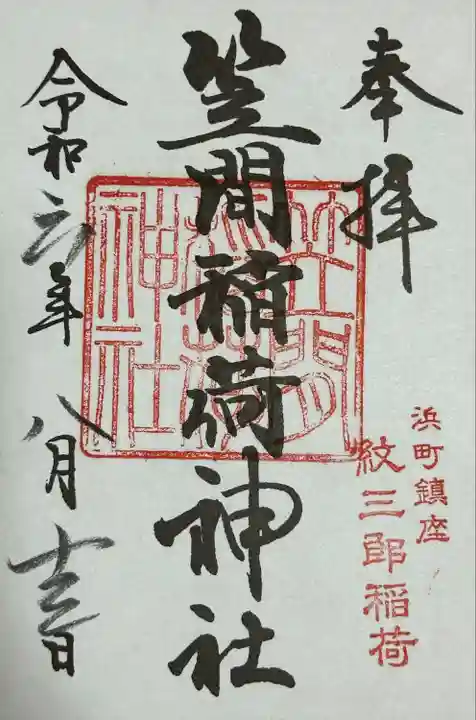 奉拝
浜町鎮座
紋三郎稲荷
笠間稲荷神社
笠間稲荷神社
令和六年八月十三日